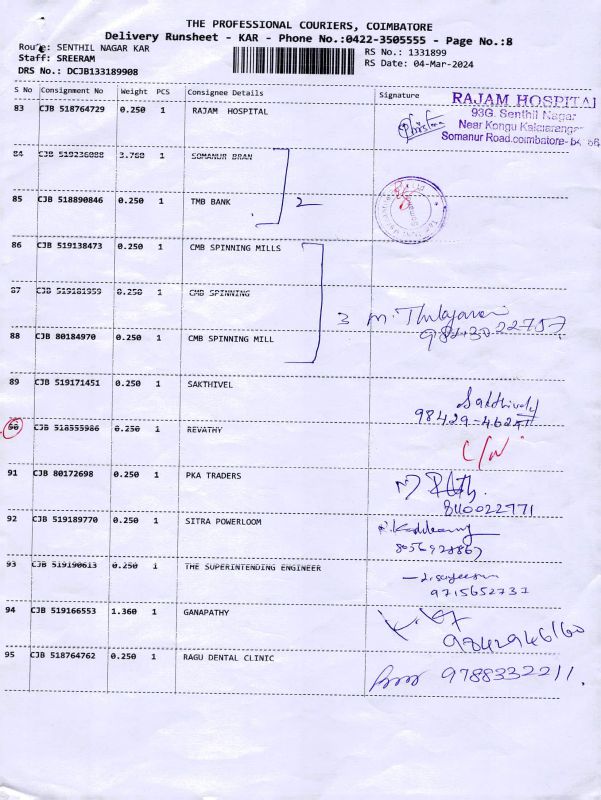 THE PROFESSIONAL COURIERS, COIMBATORE
Delivery Runsheet - KAR - Phone No.:0422-3505555 - Page No.:8
Route: SENTHIL NAGAR KAR
RS No.: 1331899
Staff: SREERAM
RS Date: 04-Mar-2024
DRS No.: DCJB133189908
S No Consignment No Weight PCS Consignee Details Signature
83 CJB 518764729 0.250 1 RAJAM HOSPITAL
RAJAM HOSPITAL
93G, Senthil Nagar
Near Kongu
Somanur Road, coimbatore-
84 CJB 519236088 3.760 1 SOMANUR BRAN
85 CJB 518890846 0.250 1 TMB BANK
2
86 CJB 519138473 0.250 1 CMB SPINNING MILLS
87 CJB 519181959 0.250 1 CMB SPINNING
3 M.
98430 22757
88 CJB 80184970 0.250 1 CMB SPINNING MILL
89 CJB 519171451 0.250 1 SAKTHIVEL
90 CJB 518555986 0.250 1 REVATHY
C/N
91 CJB 80172698 0.250 1 PKA TRADERS
8110022771
92 CJB 519189770 0.250 1 SITRA POWERLOOM
8056928867
93 CJB 519190613 0.250 1 THE SUPERINTENDING ENGINEER
9715652737
94 CJB 519166553 1.360 1 GANAPATHY
9842946160
95 CJB 518764762 0.250 1 RAGU DENTAL CLINIC
9788332211.